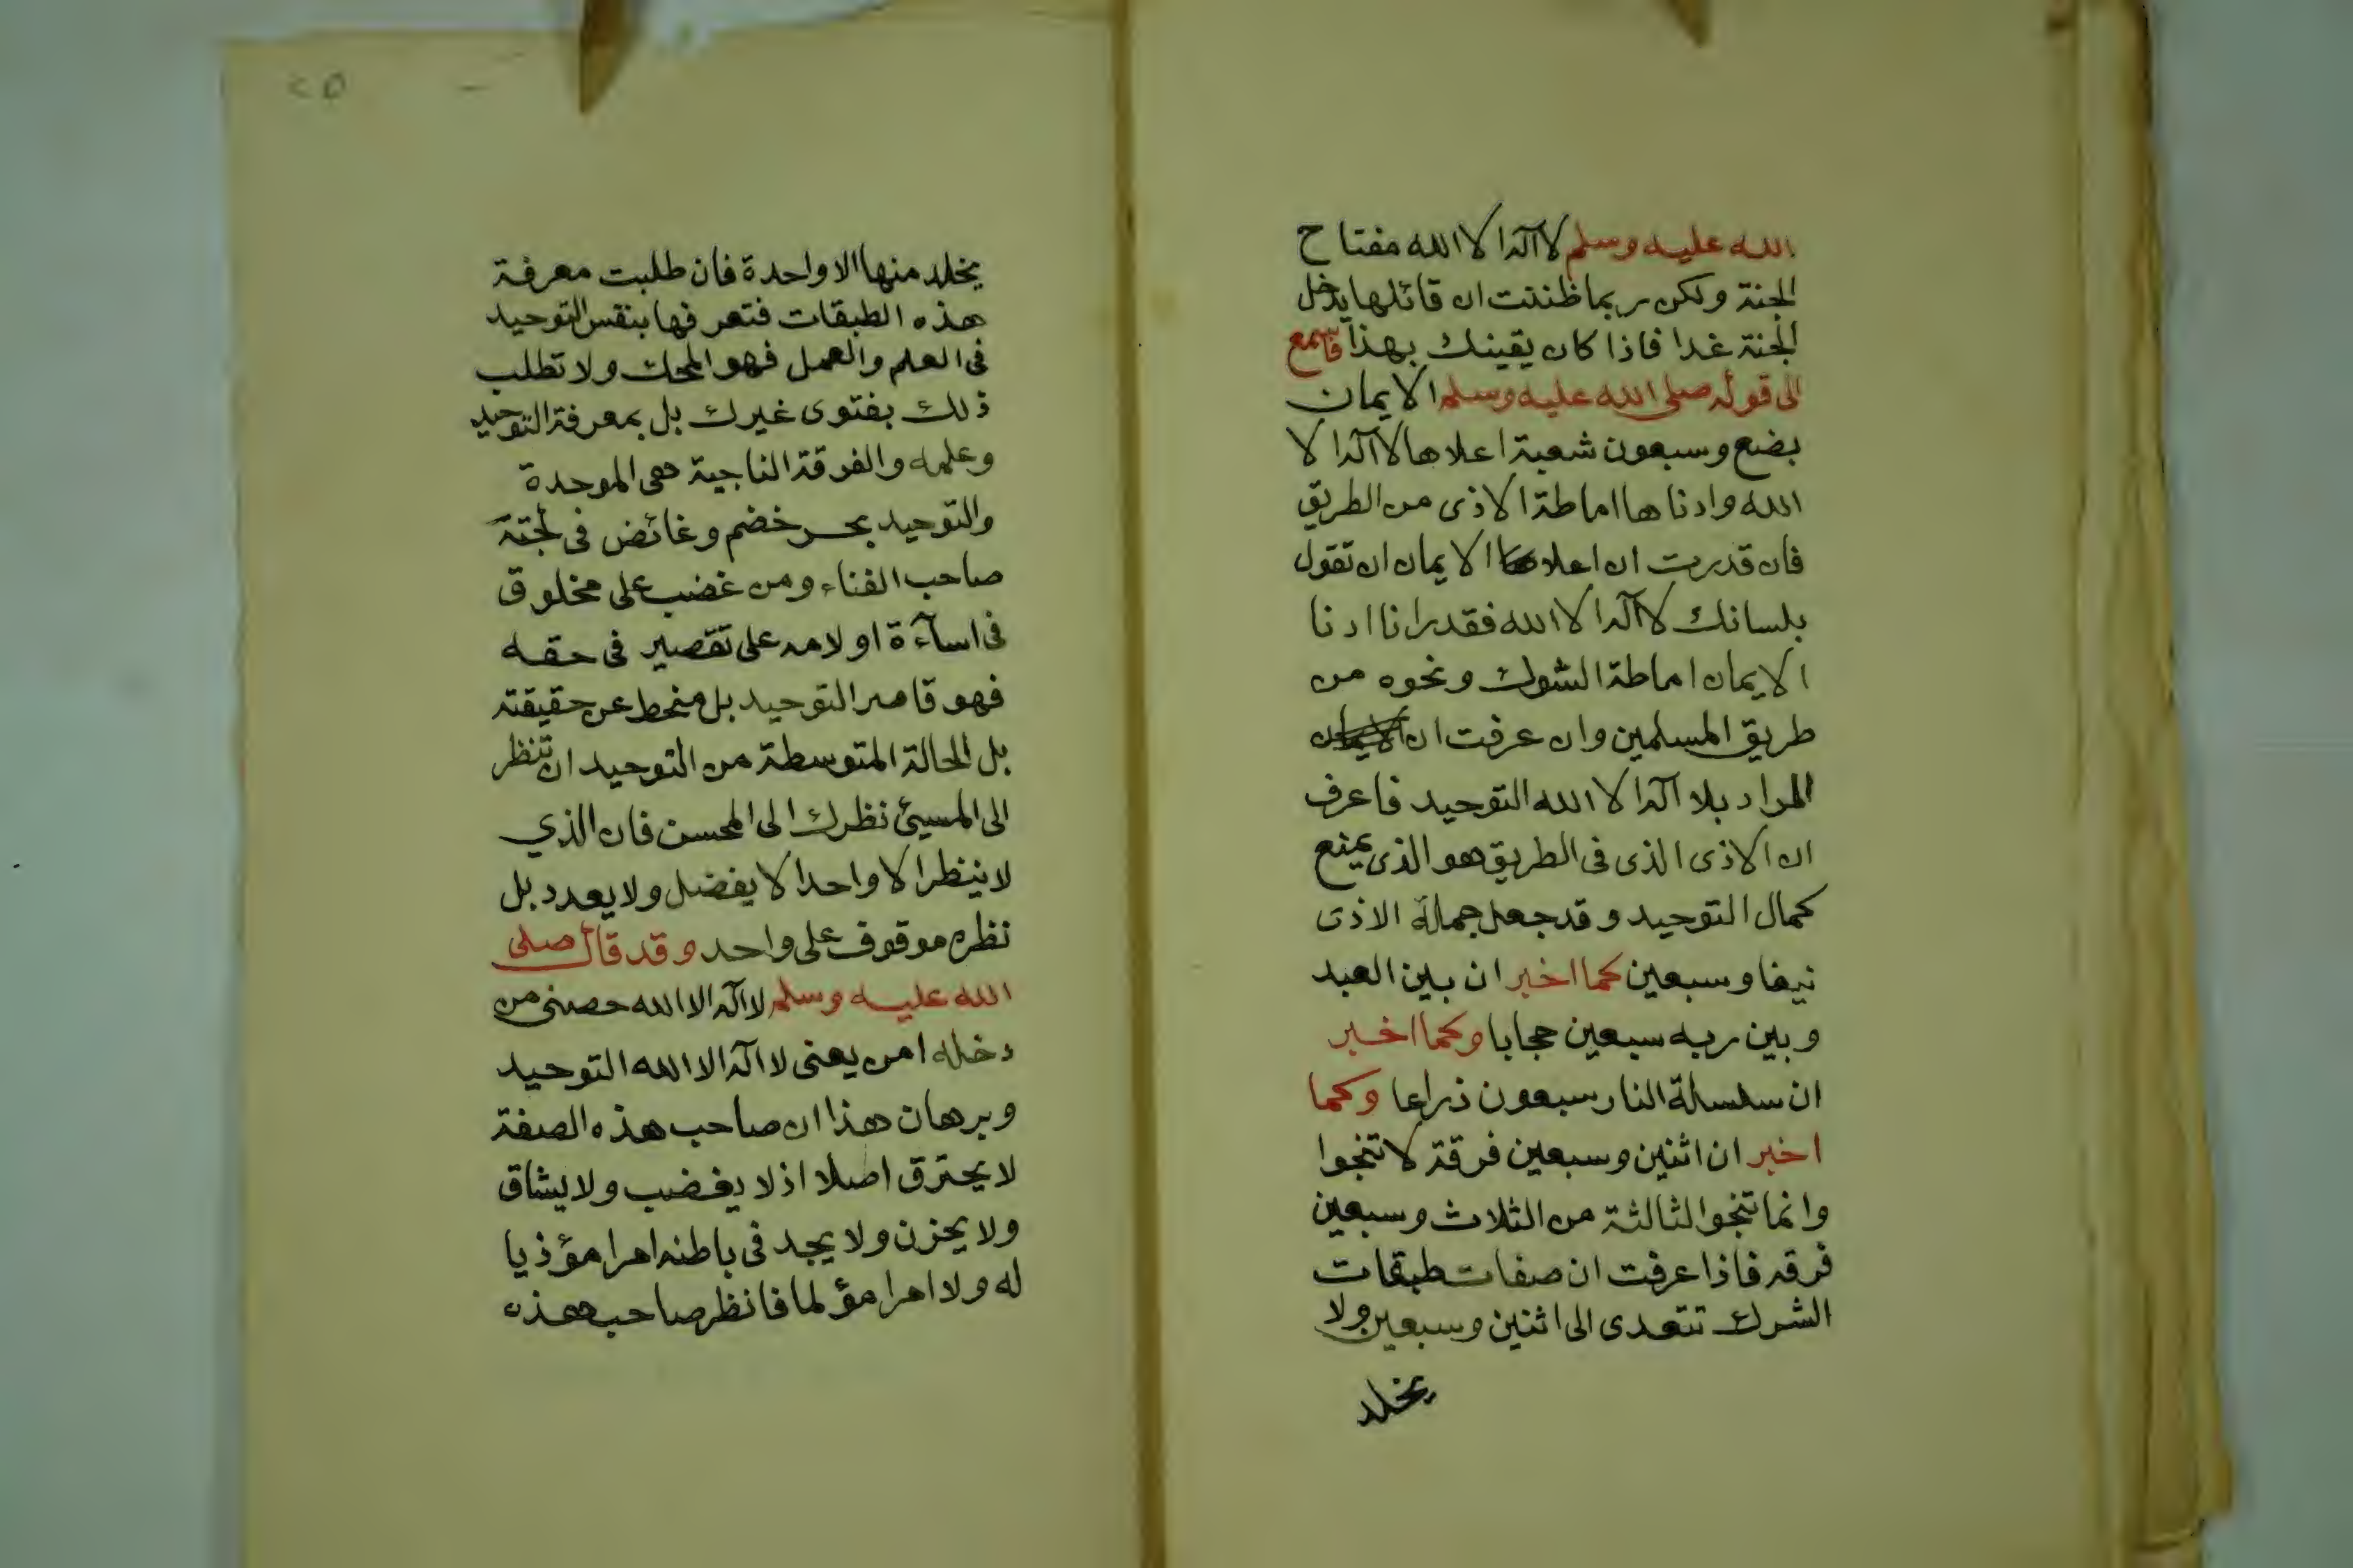 الله عليه وسلم لا اله الا الله مفتاح
الجنة ولكن ربما ظننت ان قائلها يدخل
الجنة غدا فاذا كان يقينك بهذا فاسمع
الى قوله صلى الله عليه وسلم الايمان
بضع وسبعون شعبة اعلاها لا اله الا
الله وادناها اماطة الاذى من الطريق
فان قدرت ان اعلا الايمان ان تقول
بلسانك لا اله الا الله فقدرانا ادنا
الايمان اماطة الشوك ونحوه من
طريق المسلمين وان عرفت ان
المراد بلا اله الا الله التوحيد فاعرف
ان الاذى الذى فى الطريق هو الذى يمنع
كمال التوحيد وقد جعل جملة الاذى
نيفا وسبعين كما اخبر ان بين العبد
وبين ربه سبعين حجابا وكما اخبر
ان سلسلة النار سبعون ذراعا وكما
اخبر ان اثنين وسبعين فرقة لا تنجوا
وانما تنجوا الثالثة من الثلاث وسبعين
فرقه فاذا عرفت ان صفات طبقات
الشرك تتعدى الى اثنين وسبعين ولا
يخلد
٢٥
يخلد منها الا واحدة فان طلبت معرفة
هذه الطبقات فتعرفها بنقس التوحيد
فى العلم والعمل فهو المحك ولا تطلب
ذلك بفتوى غيرك بل بمعرفة التوحيد
وعلمه والفرقة الناجية هى الموحدة
والتوحيد بحر خضم وغائض فى لجته
صاحب الفناء ومن غضب على مخلوق
فى اساءة او لامه على تقصير فى حقه
فهو قاصر التوحيد بل منحط عن حقيقته
بل الحالة المتوسطة من التوحيد ان تنظر
الى المسيئ نظرك الى المحسن فان الذي
لا ينظر الا واحدا لا يفضل ولا يعدد بل
نظره موقوف على واحد وقد قال صلى
الله عليه وسلم لا اله الا الله حصنى من
دخله امن يعنى لا اله الا الله التوحيد
وبرهان هذا ان صاحب هذه الصفة
لا يحترق اصلا اذ لا يغضب ولا يشاق
ولا يحزن ولا يجد فى باطنه امرا مؤذيا
له ولا امرا مؤلما فانظر صاحب هذه